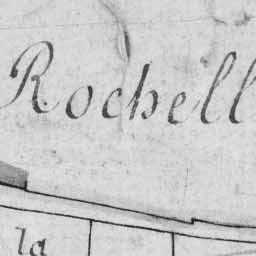 Rochell
la